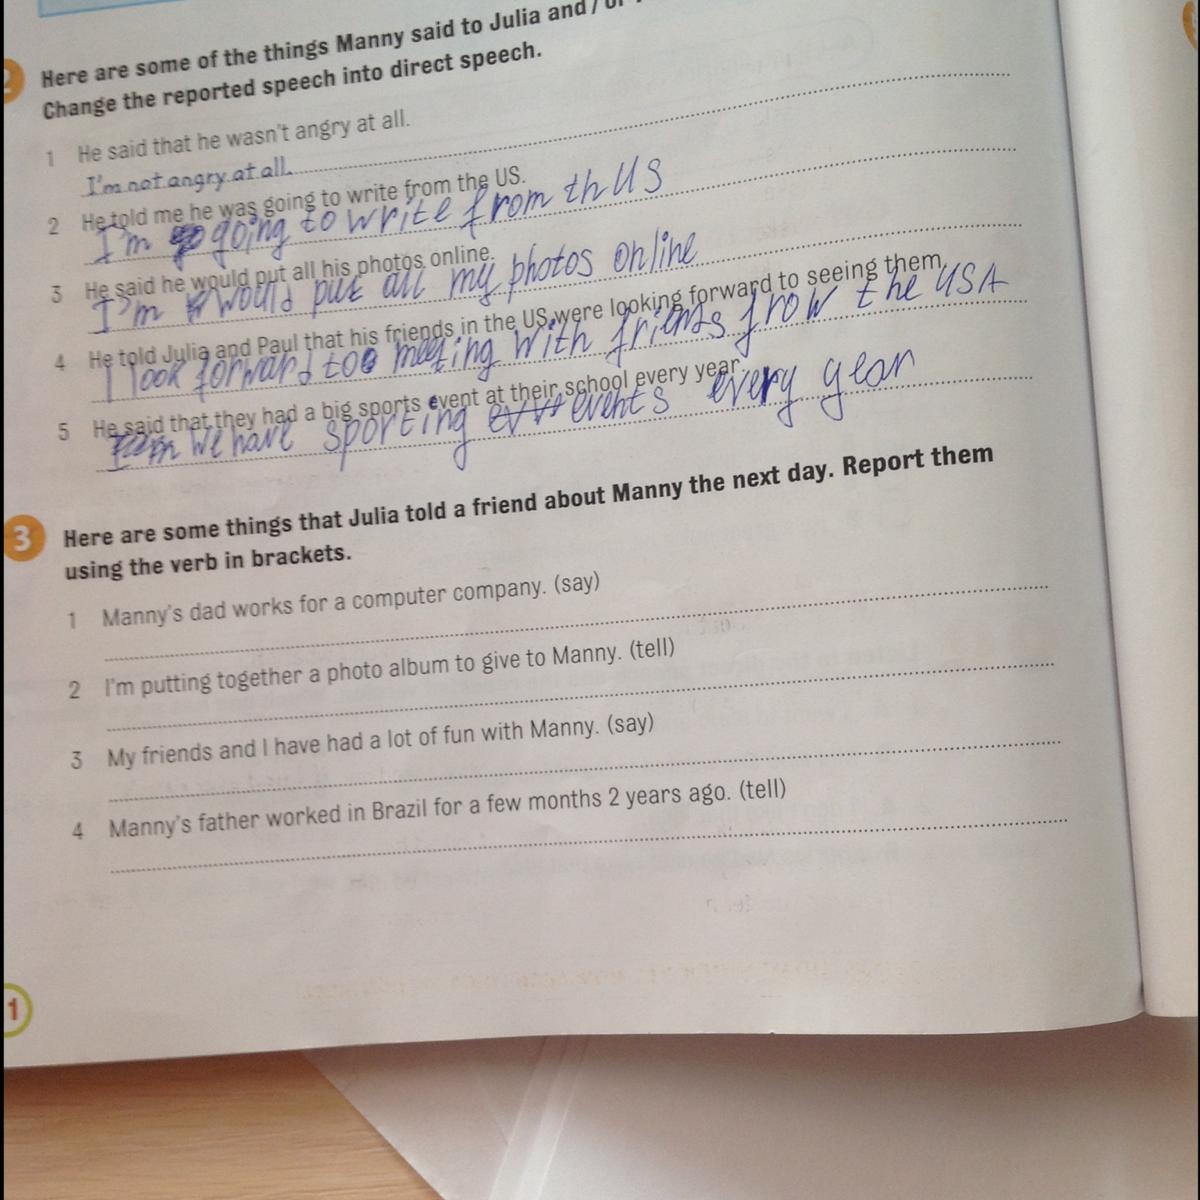 2 Here are some of the things Manny said to Julia and / or
Change the reported speech into direct speech.
1 He said that he wasn't angry at all.
I'm not angry at all.
2 He told me he was going to write from the US.
I'm going to write from th US
3 He said he would put all his photos online.
I'm would put all my photos online
4 He told Julia and Paul that his friends in the US were looking forward to seeing them.
I look forward too meeting with frients frow the USA
5 He said that they had a big sports event at their school every year.
we have sporting events every year
3 Here are some things that Julia told a friend about Manny the next day. Report them
using the verb in brackets.
1 Manny's dad works for a computer company. (say)
2 I'm putting together a photo album to give to Manny. (tell)
3 My friends and I have had a lot of fun with Manny. (say)
4 Manny's father worked in Brazil for a few months 2 years ago. (tell)
1